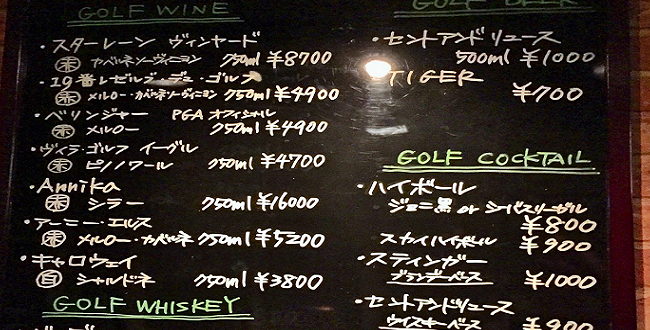 GOLF WINE
・スターレーン ヴィンヤード
赤 カベルネソーヴィニヨン 750ml ¥8700
・19番レゼルブ・デュ・ゴルフ
赤 メルロー・カベルネソーヴィニヨン 750ml ¥4900
・ベリンジャー PGAオフィシャル
赤 メルロー 750ml ¥4900
・ヴィラ・ゴルフ イーグル
赤 ピノノワール 750ml ¥4700
・Annika
赤 シラー 750ml ¥16000
・アーニー・エルス
赤 メルロー・カベルネ 750ml ¥5200
・キャロウェイ
白 シャルドネ 750ml ¥3800
GOLF WHISKEY
GOLF BEER
・セントアンドリュース
500ml ¥1000
TIGER
¥700
GOLF COCKTAIL
・ハイボール
ジョニ黒 or シーバスリーガル
¥800
スカイハイボール ¥900
・スティンガー
ブランデーベース ¥1000
・セントアンドリュース
ウイスキーベース ¥900